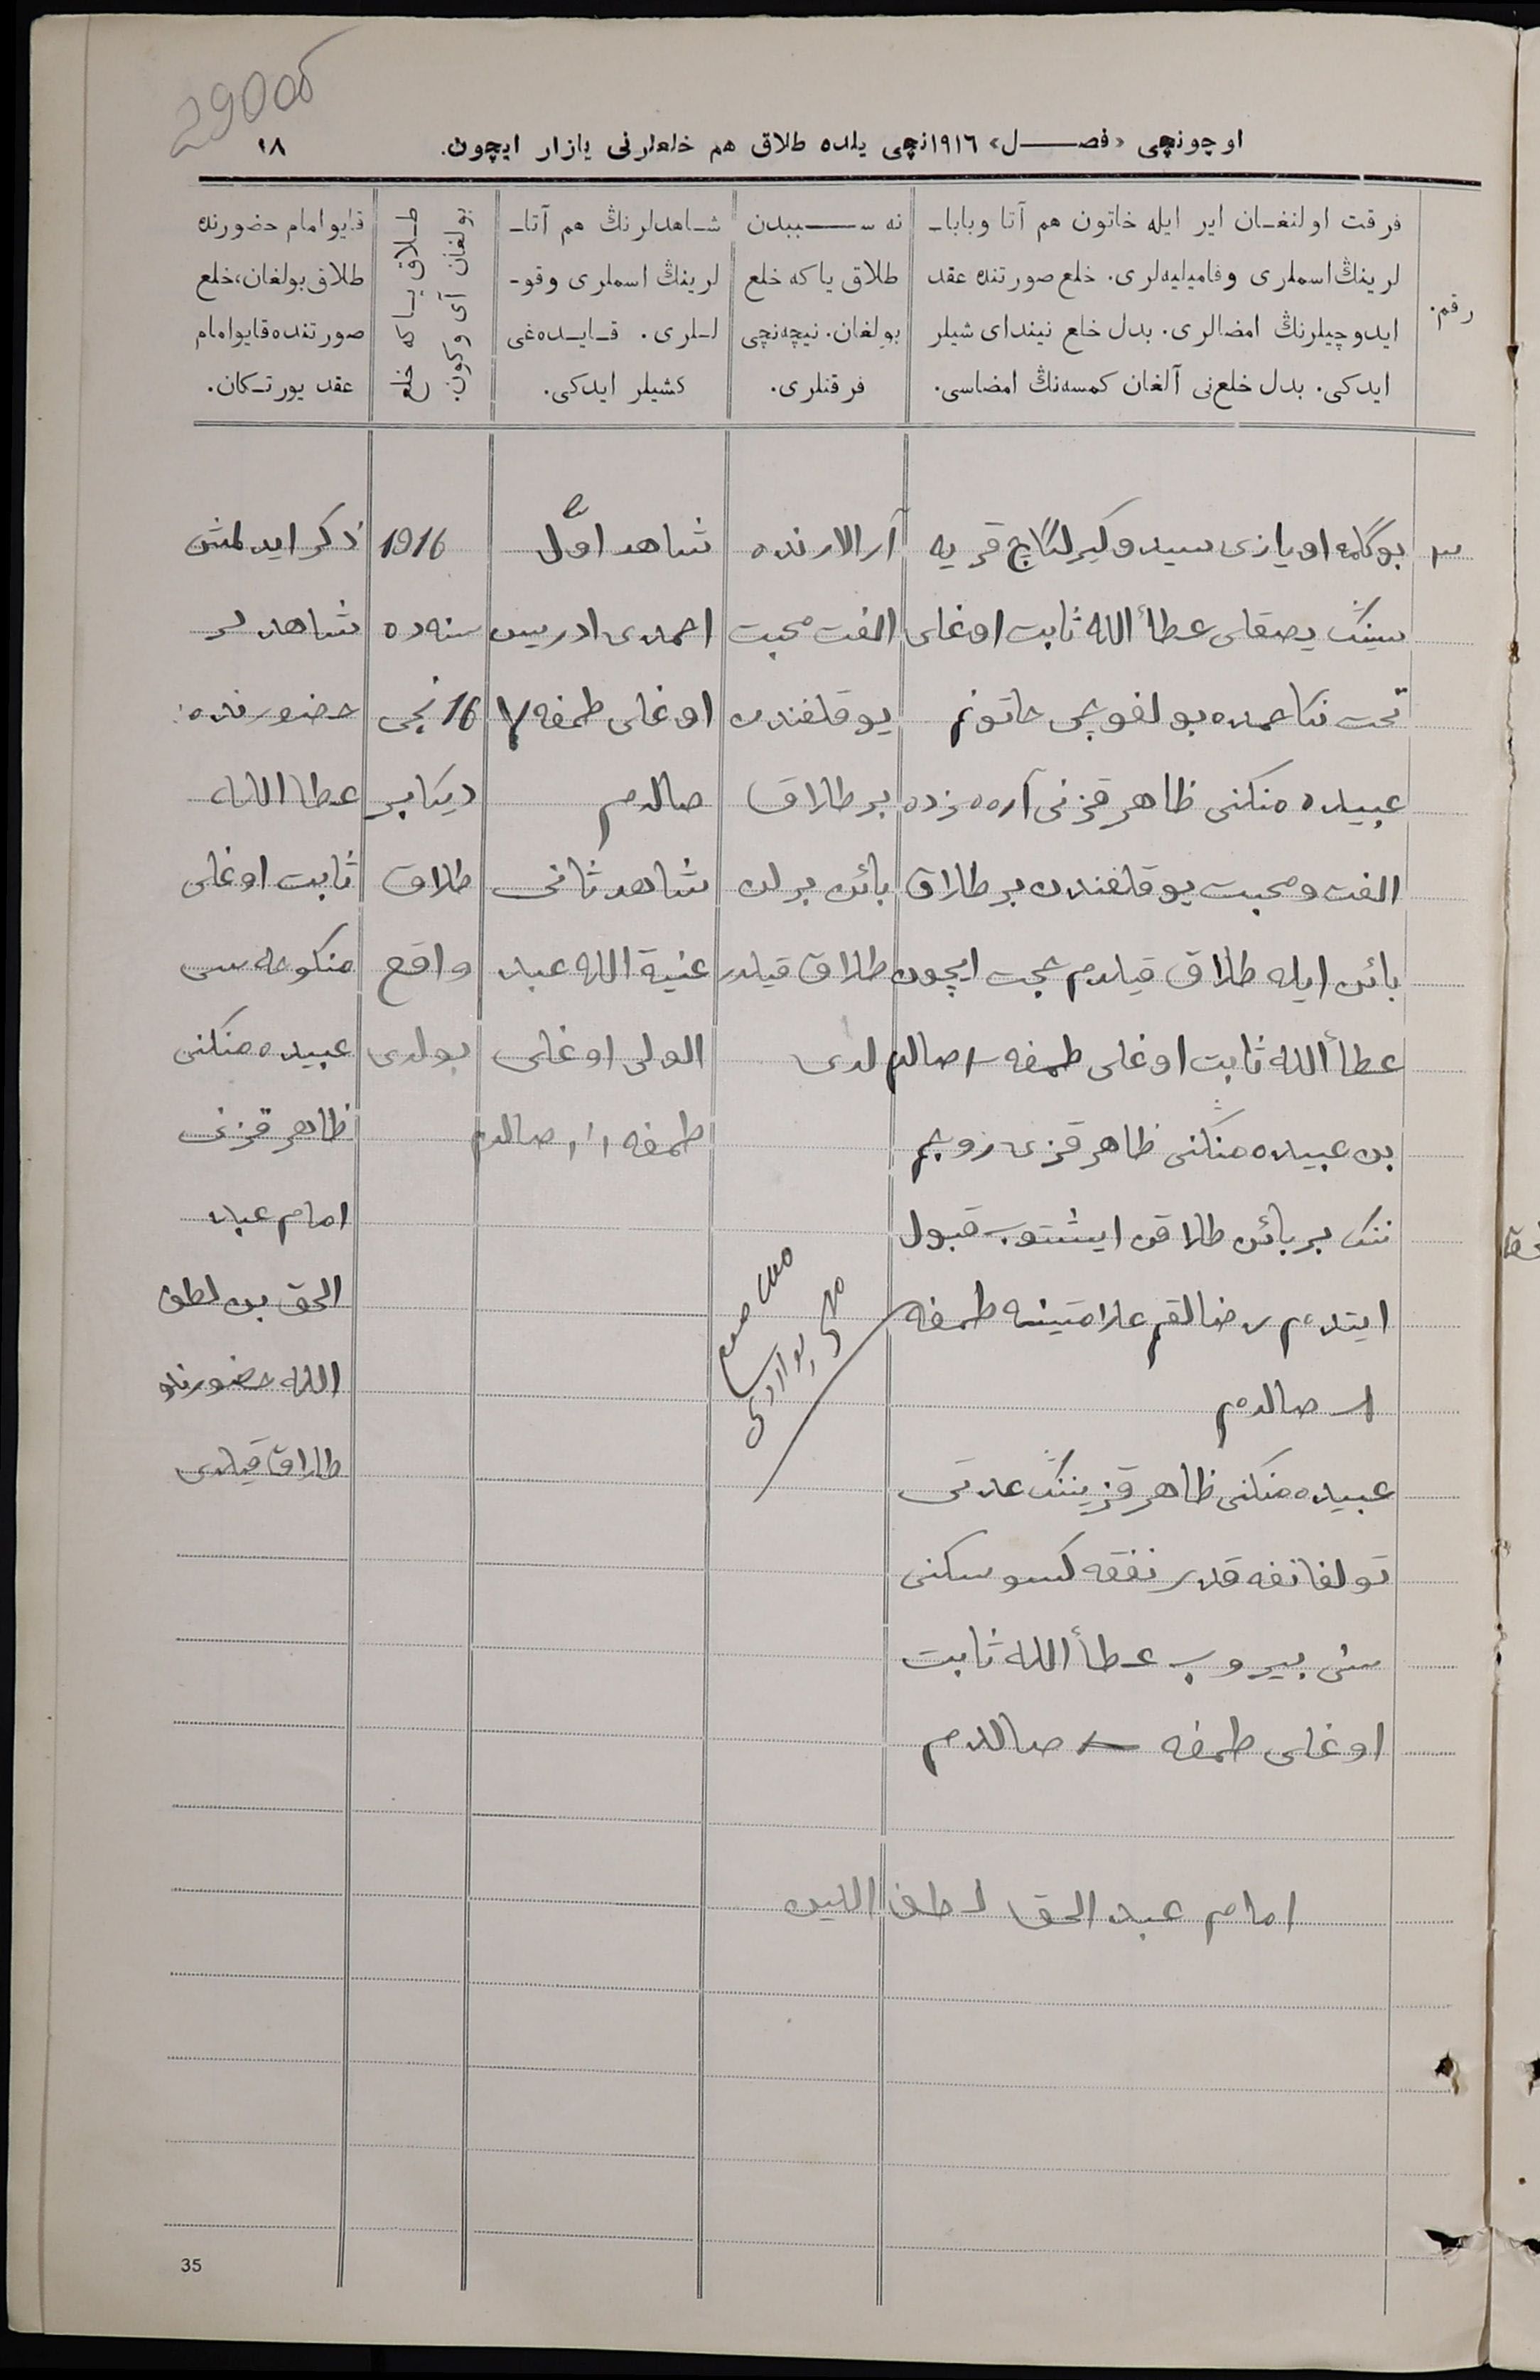 29об
١٨
اوچونچی «فصـــل» ١٩١٦نچی یلده طلاق هم خلعلرنی یازار ایچون.
رقم.
فرقت اولنغـان ایر ایله خاتون هم آتا وبابا-
لرینڭ اسملری وفامیلیه‌لری. خلع صورتنده عقد
ایدوچیلرنڭ امضالری. بدل خلع نیندای شیلر
ایدکی. بدل خلع‌نی آلغان کمسه‌نڭ امضاسی.
نه ســـببدن
طلاق یاکه خلع
بولغان. نیچه‌نچی
فرقتلری.
شـاهدلرنڭ هم آتا-
لرینڭ اسملری وقو-
لـلری. قـایـده‌غی
کشیلر ایدکی.
طـلاق یـاکه خلع
بولغان آی وکون
قایو امام حضورنده
طلاق بولغان، خلع
صورتنده قایو امام
عقد یورتـکان.
٣
بوگلمه اویازی قریه
سینڭ عطأ الله ثابت اوغلی
تحت نکاحمده بولغوچی خاتونم
عبیده منکنی ظاهر قزنی آره‌مزده
الفت ومحبت یوقلغندن بر طلاق
بائن ایله طلاق قیلدم حجت ایچون
عطأ الله ثابت اوغلی طمغه صالدم
بن عبیده منکنی ظاهر قزی زوجم
ننڭ بر بائن طلاقن ایشتوب قبول
ایتدم رضالقم علامتینه طمغه
صالدم
عبیده منکنی ظاهر قزیننڭ عدتی
تولغانغه قدر نفقه کسوه سکنی
سنی بیروب عطأ الله ثابت
اوغلی طمغه صالدم
آرالارنده
الفت محبت
یوقلغندن
بر طلاق
بائن برلن
طلاق قیلدر
لدی
شاهد اوّل
احمدی ادریس
اوغلی طمغه ٧
صالدم
شاهد ثانی
غنیة الله عبد
الولی اوغلی
طمغه صالدم
1916
سنه‌ده
16 نچی
دیکابر
طلاق
واقع
بولدی
ذکر ایدلمش
شاهدلر
حضورنده:
عطا الله
ثابت اوغلی
منکوحه سی
عبیده منکنی
ظاهر قزنی
امام عبد
الحق بن لطف
الله حضورنده
طلاق قیلدی
امام عبد الحق لطف اللین
35